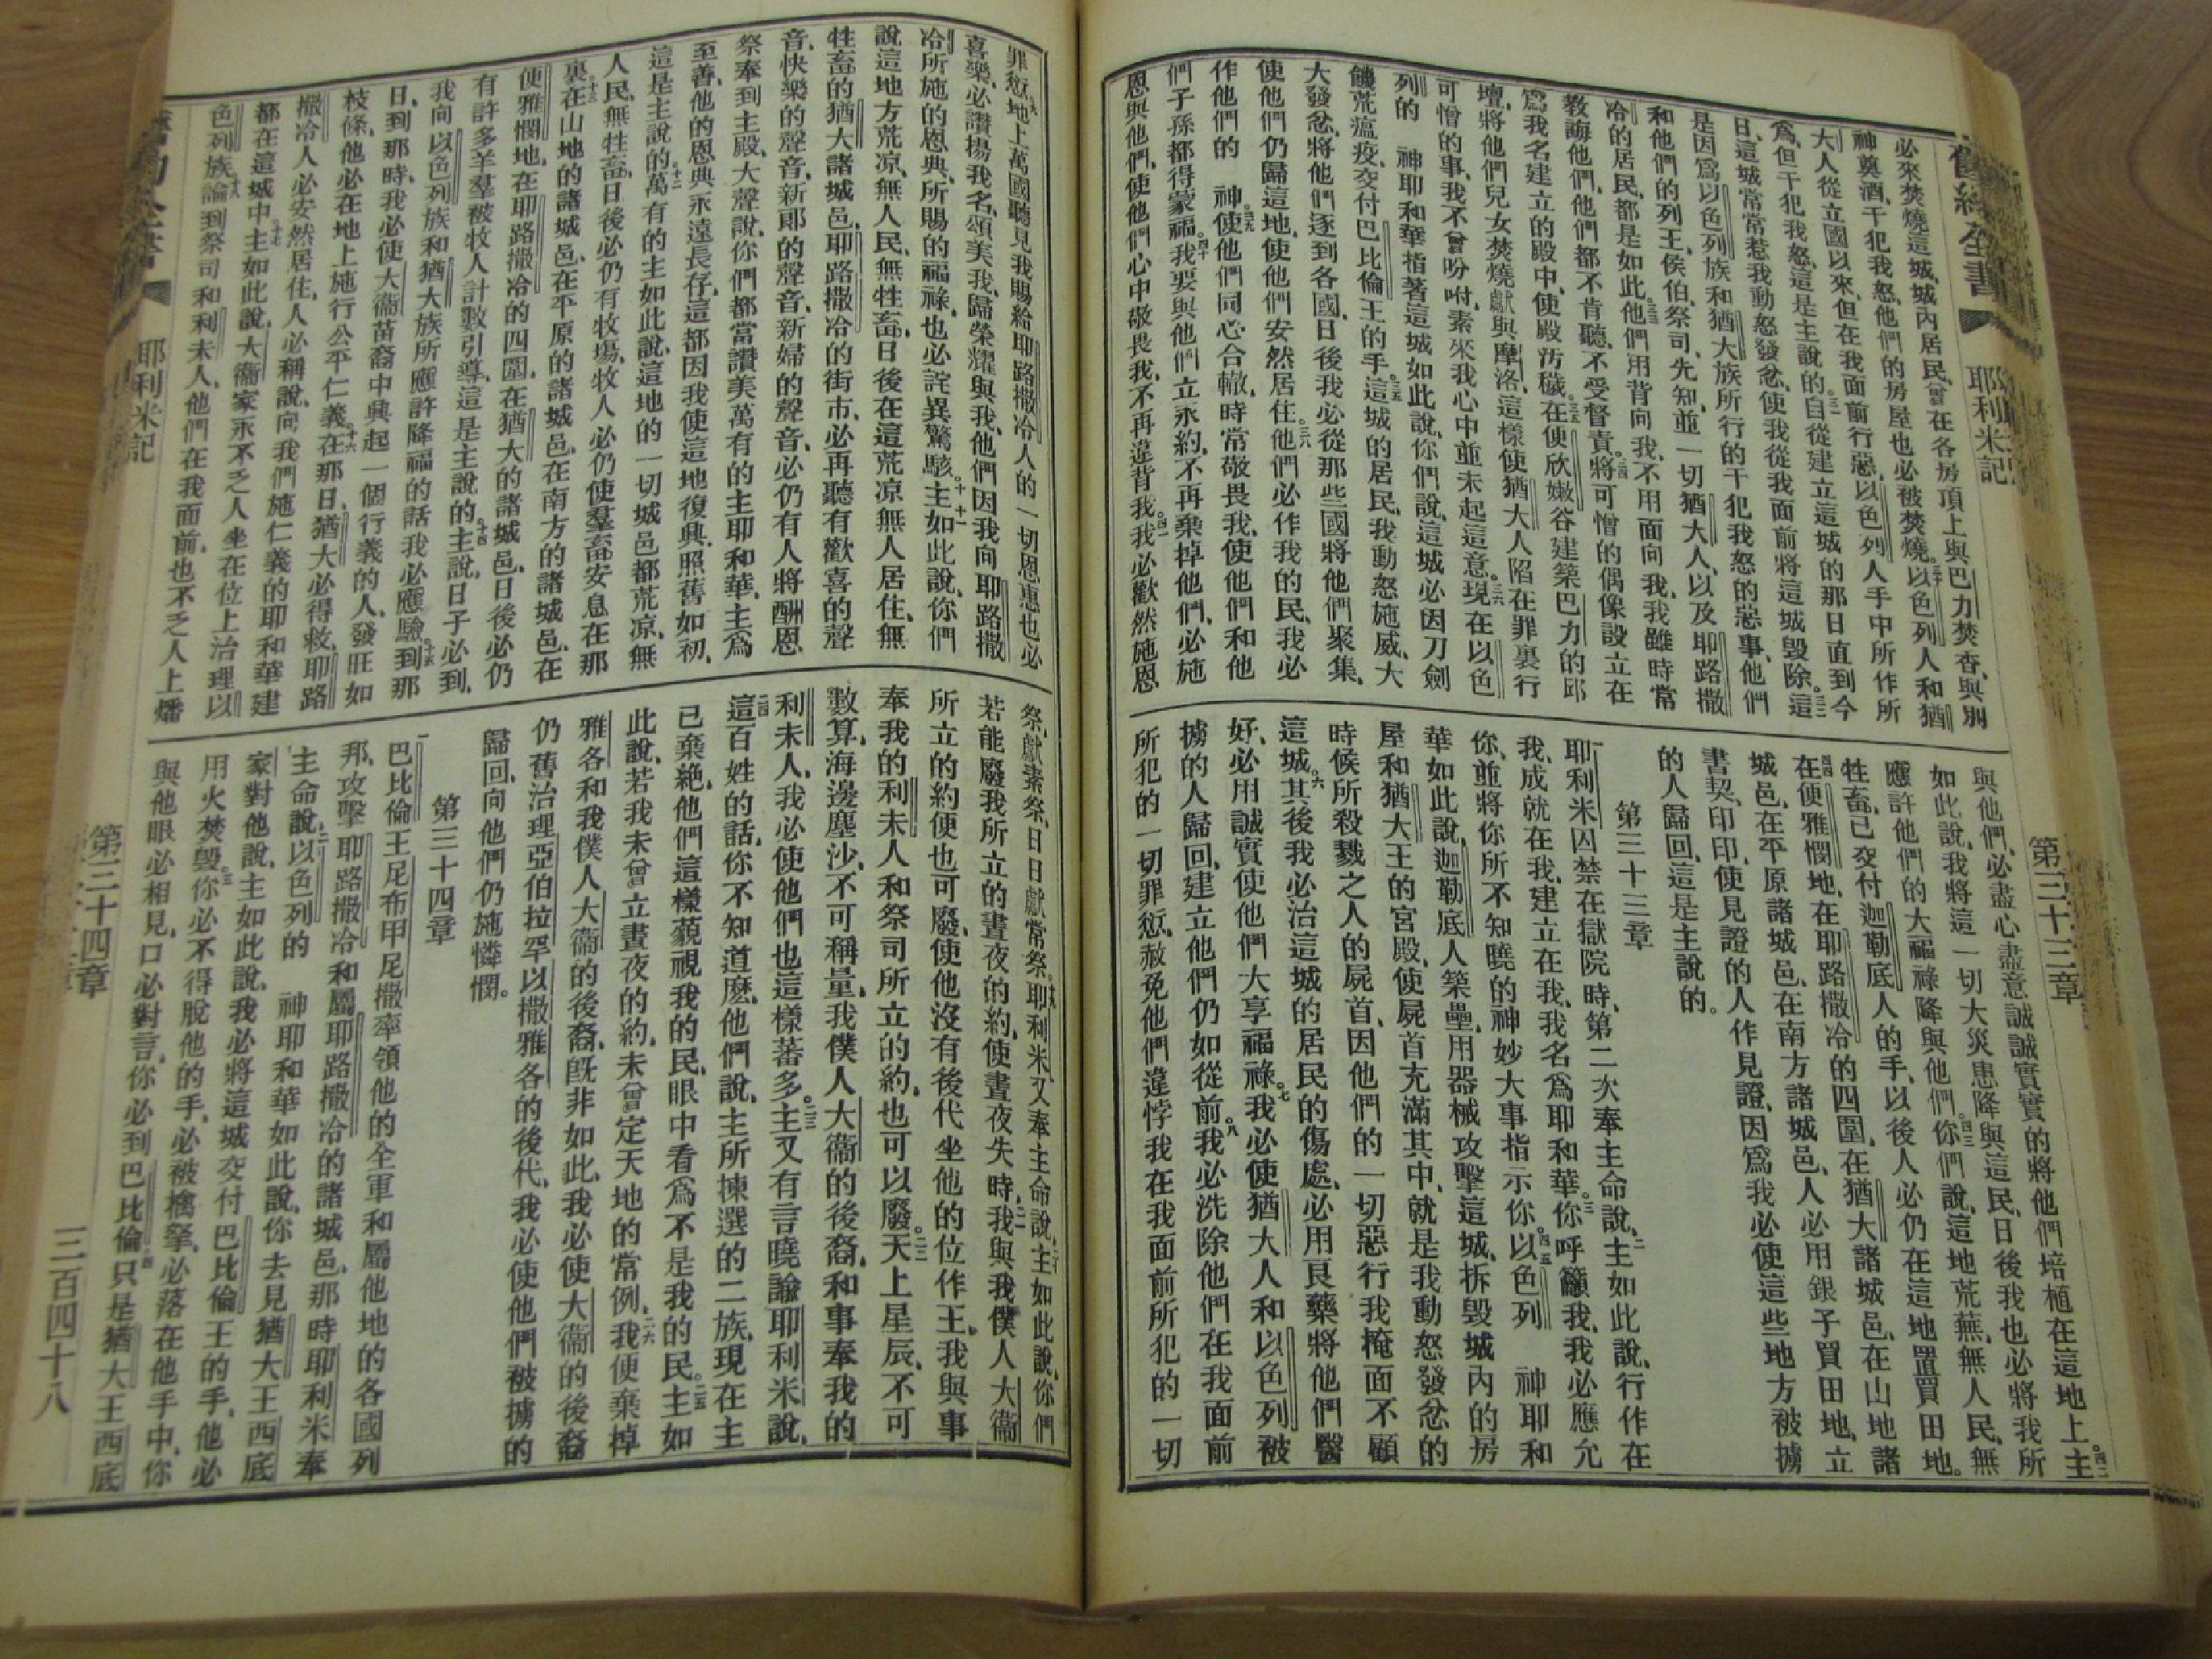 舊約全書
耶利米記
第三十三章
必來焚燒這城、城內居民、曾在各房頂上與巴力焚香、與別
神奠酒、干犯我怒、他們的房屋也必被焚燒。三十以色列人和猶
大人從立國以來、但在我面前行惡、以色列人手中所作所
爲、但干犯我怒、這是主說的。三一自從建立這城的那日直到今
日、這城常常惹我動怒發忿、使我從我面前將這城毀除。三二這
是因爲以色列族和猶大族所行的干犯我怒的惡事、他們
和他們的列王、侯伯、祭司、先知、並一切猶大人、以及耶路撒
冷的居民、都是如此。三三他們用背向我、不用面向我、我雖時常
教誨他們、他們都不肯聽、不受督責。三四將可憎的偶像設立在
爲我名建立的殿中、使殿汚穢。三五在便欣嫩谷建築巴力的邱
壇、將他們兒女焚燒獻與摩洛、這樣使猶大人陷在罪裏、行
可憎的事、我不曾吩咐、素來我心中並未起這意。三六現在以色
列的　神耶和華指著這城如此說、你們說、這城必因刀劍
饑荒瘟疫、交付巴比倫王的手。這城的居民、我動怒施威、大
大發忿、將他們逐到各國、日後我必從那些國將他們聚集、
使他們仍歸這地、使他們安然居住。三八他們必作我的民、我必
作他們的　神。三九使他們同心合轍、時常敬畏我、使他們和他
們子孫都得蒙福。四十我要與他們立永約、不再棄掉他們、必施
恩與他們、使他們心中敬畏我、不再違背我。四一我必歡然施恩
與他們、必盡心盡意誠誠實實的將他們培植在這地上。四二主
如此說、我將這一切大災患降與這民、日後我也必將我所
應許他們的大福祿降與他們。四三你們說、這地荒蕪、無人民、無
牲畜、已交付迦勒底人的手、以後人必仍在這地置買田地。
四四在便雅憫地、在耶路撒冷的四圍、在猶大諸城邑、在山地諸
城邑、在平原諸城邑、在南方諸城邑、人必用銀子買田地、立
書契、印印、使見證的人作見證、因爲我必使這些地方被擄
的人歸回、這是主說的。
第三十三章
一耶利米囚禁在獄院時、第二次奉主命說、二主如此說、行作在
我、成就在我、建立在我、我名爲耶和華。三你呼籲我、我必應允
你、並將你所不知曉的神妙大事指示你。四五以色列　神耶和
華如此說、迦勒底人築壘、用器械攻擊這城、拆毀城內的房
屋和猶大王的宮殿、使屍首充滿其中、就是我動怒發忿的
時候所殺戮之人的屍首、因他們的一切惡行我掩面不顧
這城。六其後我必治這城的居民的傷處、必用良藥將他們醫
好、必用誠實使他們大享福祿。七我必使猶大人和以色列被
擄的人歸回、建立他們仍如從前。八我必洗除他們在我面前
所犯的一切罪愆、赦免他們違悖我在我面前所犯的一切
罪愆。九地上萬國聽見我賜給耶路撒冷人的一切恩惠、也必
喜樂、必讚揚我名、頌美我、歸榮耀與我、他們因我向耶路撒
冷所施的恩典、所賜的福祿、也必詫異驚駭。十十一主如此說、你們
說這地方荒凉、無人民、無牲畜、日後在這荒凉無人居住、無
牲畜的猶大諸城邑、耶路撒冷的街市、必再聽有歡喜的聲
音、快樂的聲音、新郎的聲音、新婦的聲音、必仍有人將酬恩
祭奉到主殿、大聲說、你們都當讚美萬有的主耶和華、主爲
至善、他的恩典永遠長存、這都因我使這地復興、照舊如初、
這是主說的。十二萬有的主如此說、這地的一切城邑都荒凉、無
人民、無牲畜、日後必仍有牧場、牧人必仍使羣畜安息在那
裏。十三在山地的諸城邑、在平原的諸城邑、在南方的諸城邑、在
便雅憫地、在耶路撒冷的四圍、在猶大的諸城邑、日後必仍
有許多羊羣被牧人計數引導、這是主說的。十四主說、日子必到、
我向以色列族和猶大族所應許降福的話、我必應驗。十五到那
日、到那時、我必使大衞苗裔中興起一個行義的人、發旺如
枝條、他必在地上施行公平仁義。十六在那日、猶大必得救、耶路
撒冷人必安然居住、人必稱說、向我們施仁義的耶和華建
都在這城中。十七主如此說、大衞家永不乏人坐在位上治理以
色列族。十八論到祭司和利未人、他們在我面前、也不乏人上燔
祭、獻素祭、日日獻常祭。十九耶利米又奉主命說、二十主如此說、你們
若能廢我所立的晝夜的約、使晝夜失時、二一我與我僕人大衞
所立的約便也可廢、使他沒有後代坐他的位作王、我與事
奉我的利未人和祭司所立的約、也可以廢。二二天上星辰、不可
數算、海邊塵沙、不可稱量、我僕人大衞的後裔、和事奉我的
利未人、我必使他們也這樣蕃多。二三主又有言曉諭耶利米說、
二四這百姓的話、你不知道麽、他們說、主所揀選的二族、現在主
已棄絕、他們這樣藐視我的民、眼中看爲不是我的民。二五主如
此說、若我未曾立晝夜的約、未曾定天地的常例、二六我便棄掉
雅各和我僕人大衞的後裔、旣非如此、我必使大衞的後裔
仍舊治理亞伯拉罕以撒雅各的後代、我必使他們被擄的
歸回、向他們仍施憐憫。
第三十四章
一巴比倫王尼布甲尼撒率領他的全軍和屬他地的各國列
邦、攻擊耶路撒冷和屬耶路撒冷的諸城邑、那時耶利米奉
主命說、二以色列的　神耶和華如此說、你去見猶大王西底
家對他說、主如此說、我必將這城交付巴比倫王的手、他必
用火焚毀。三你必不得脫他的手、必被擒拏、必落在他手中、你
與他眼必相見、口必對言、你必到巴比倫。四只是猶大王西底
耶利米記
第三十四章
三百四十八